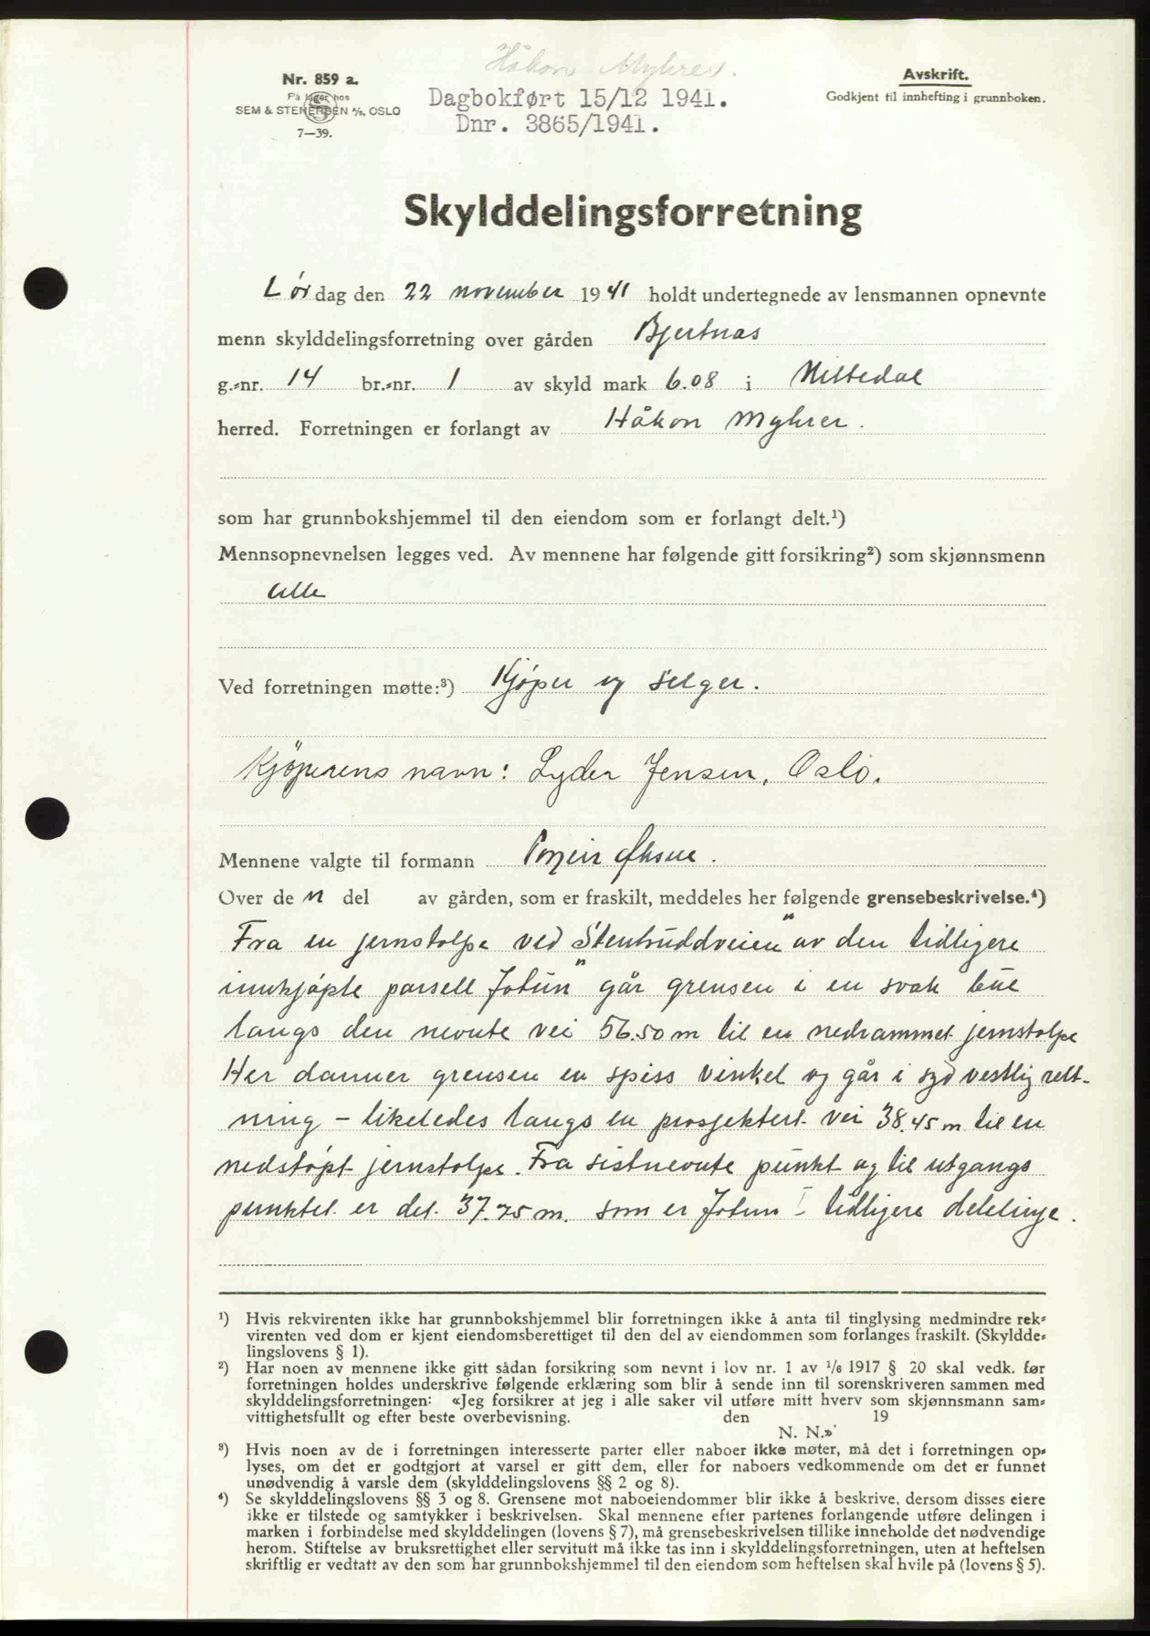 Håkon Myhrer.
Nr. 859 a.
På lager hos
SEM & STENERSEN A/S, OSLO
7—39.
Dagbokført 15/12 1941.
Dnr. 3865/1941.
Avskrift.
Godkjent til innhefting i grunnboken.
Skylddelingsforretning
Lør dag den 22 november 1941 holdt undertegnede av lensmannen opnevnte
menn skylddelingsforretning over gården Bjertnæs
g.-nr. 14 br.-nr. 1 av skyld mark 6.08 i Nittedal
herred. Forretningen er forlangt av Håkon Myhrer.
som har grunnbokshjemmel til den eiendom som er forlangt delt.¹)
Mennsopnevnelsen legges ved. Av mennene har følgende gitt forsikring²) som skjønnsmenn
alle
Ved forretningen møtte:³) Kjøper og selger.
Kjøperens navn: Lyder Jensen, Oslo.
Mennene valgte til formann
Over de n del av gården, som er fraskilt, meddeles her følgende grensebeskrivelse.⁴)
Fra en jernstolpe ved "Stenbruddveien" av den tidligere
innkjøpte parsell "Jotun" går grensen i en svak bue
langs den nevnte vei 56.50 m til en nedrammet jernstolpe
Her danner grensen en spiss vinkel og går i sydvestlig rett-
ning – likeledes langs en prosjektert vei 38.45 m til en
nedstøpt jernstolpe. Fra sistnevnte punkt og til utgangs
punktet er det 37.75 m. som er Jotun I tidligere delelinje.
¹) Hvis rekvirenten ikke har grunnbokshjemmel blir forretningen ikke å anta til tinglysing medmindre rek-
virenten ved dom er kjent eiendomsberettiget til den del av eiendommen som forlanges fraskilt. (Skyldde-
lingslovens § 1).
²) Har noen av mennene ikke gitt sådan forsikring som nevnt i lov nr. 1 av 1/6 1917 § 20 skal vedk. før
forretningen holdes underskrive følgende erklæring som blir å sende inn til sorenskriveren sammen med
skylddelingsforretningen: «Jeg forsikrer at jeg i alle saker vil utføre mitt hverv som skjønnsmann sam-
vittighetsfullt og efter beste overbevisning. den 19
N. N.»
³) Hvis noen av de i forretningen interesserte parter eller naboer ikke møter, må det i forretningen op-
lyses, om det er godtgjort at varsel er gitt dem, eller for naboers vedkommende om det er funnet
unødvendig å varsle dem (skylddelingslovens §§ 2 og 8).
⁴) Se skylddelingslovens §§ 3 og 8. Grensene mot naboeiendommer blir ikke å beskrive, dersom disses eiere
ikke er tilstede og samtykker i beskrivelsen. Skal mennene efter partenes forlangende utføre delingen i
marken i forbindelse med skylddelingen (lovens § 7), må grensebeskrivelsen tillike inneholde det nødvendige
herom. Stiftelse av bruksrettighet eller servitutt må ikke tas inn i skylddelingsforretningen, uten at heftelsen
skriftlig er vedtatt av den som har grunnbokshjemmel til den eiendom som heftelsen skal hvile på (lovens § 5).